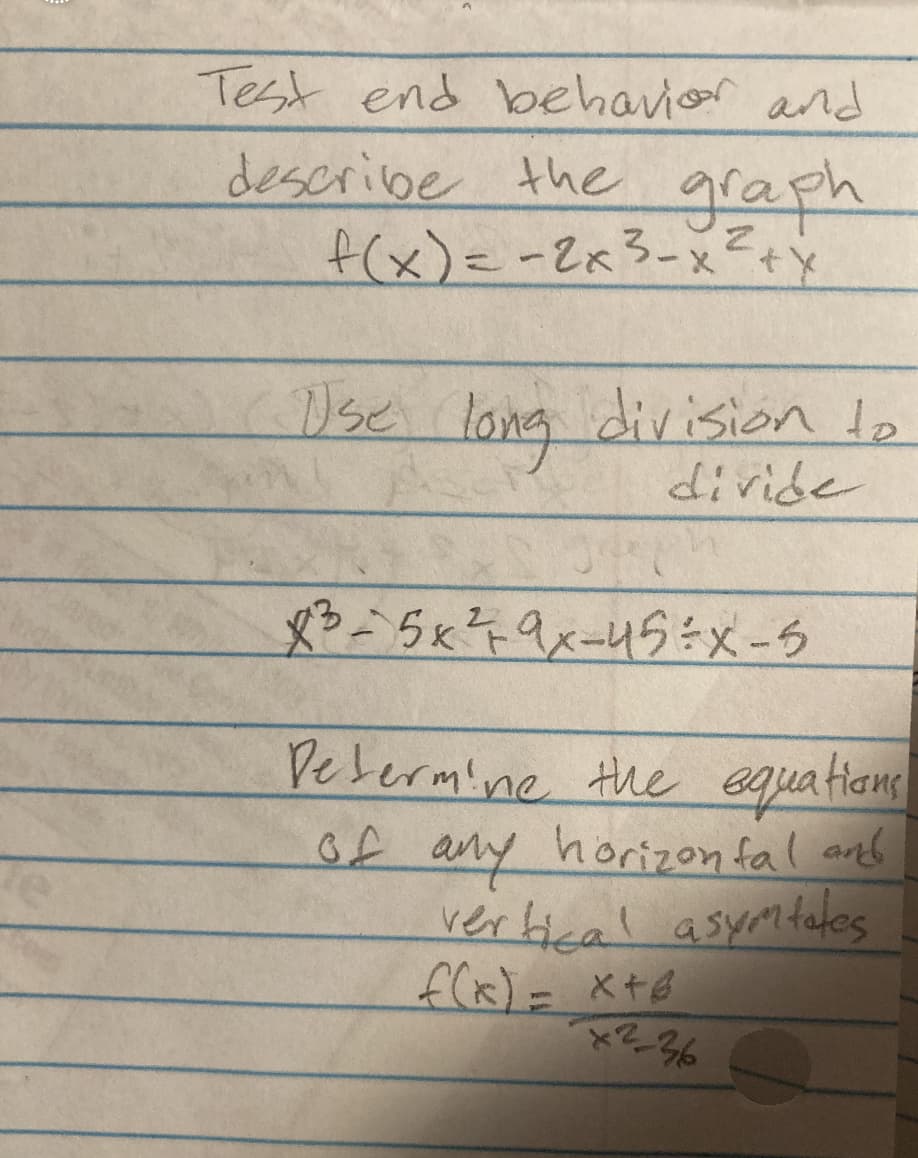 Test end behavior and
describe the graph
f(x) = -2x³-x²+x
Use long division to
divide
x³-5x²+9x-45÷x-5
Determine the equations
of any horizontal and
vertical asymtotes
f(x) = x+6
x²-36